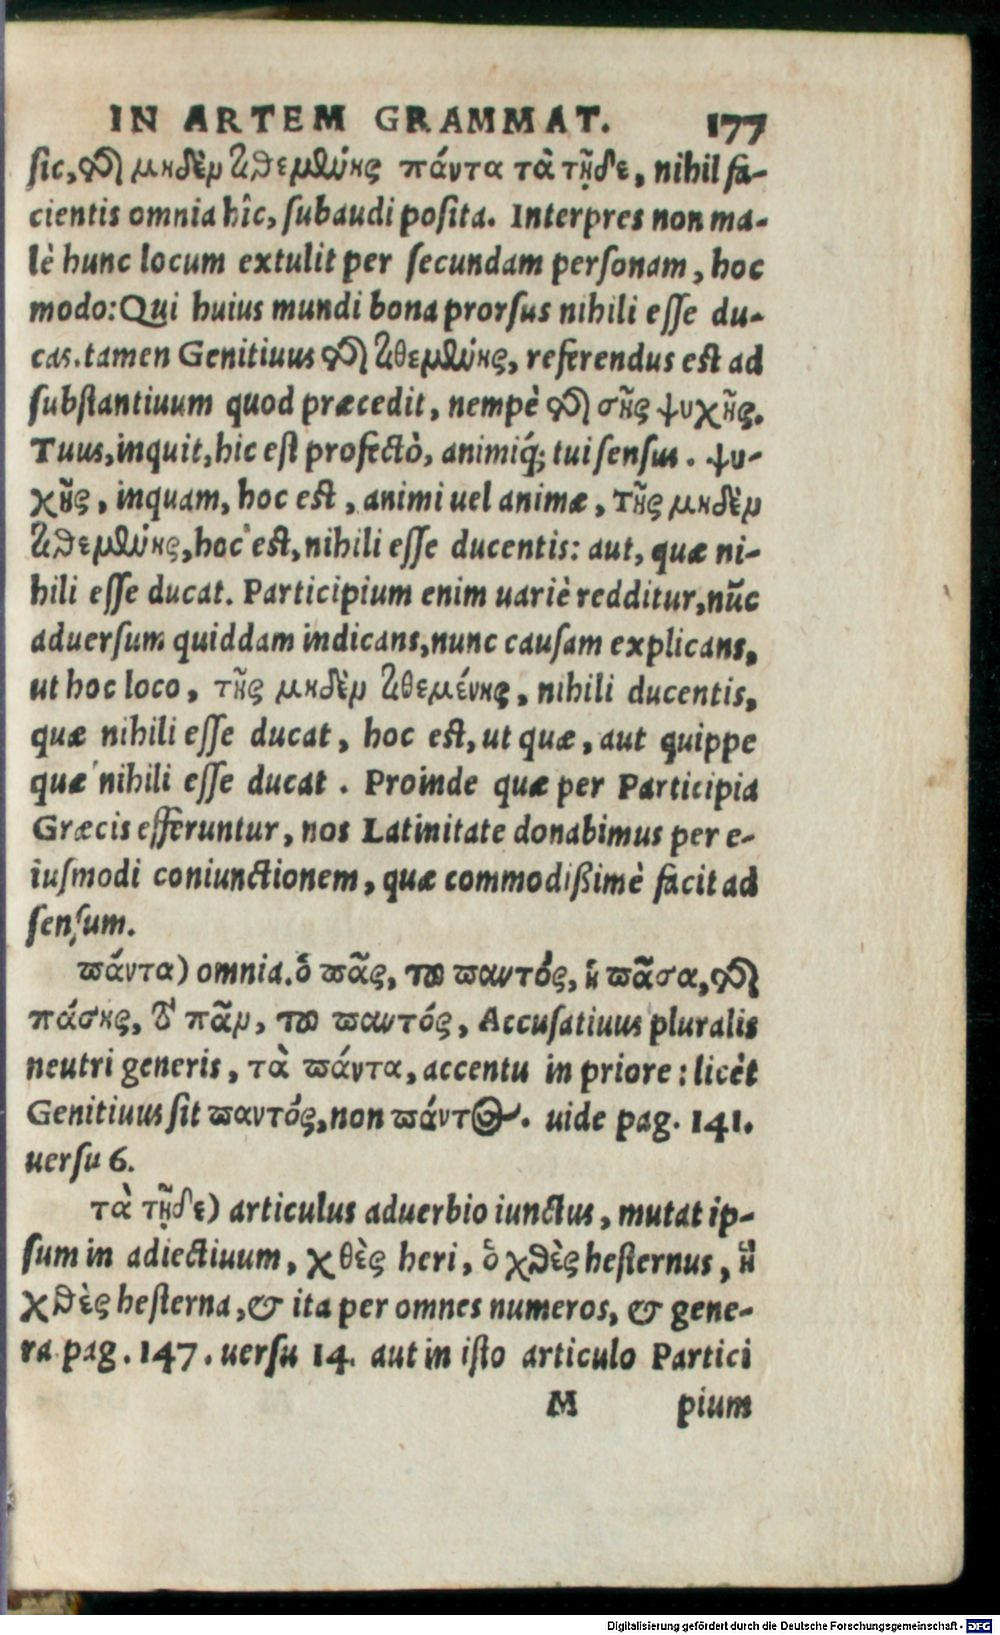 IN ARTEM GRAMMAT. 177
sic, τῆς μηδὲν τιθεμένης πάντα τὰ τῇδε, nihil fa-
cientis omnia hîc, subaudi posita. Interpres non ma-
lè hunc locum extulit per secundam personam, hoc
modo: Qui huius mundi bona prorsus nihili esse du-
cas. tamen Genitiuus τῆς τιθεμένης, referendus est ad
substantiuum quod præcedit, nempè τῆς σῆς ψυχῆς.
Tuus, inquit, hic est profectò, animiq́; tui sensus. ψυ-
χῆς, inquam, hoc est, animi uel animæ, τῆς μηδὲν
τιθεμένης, hoc est, nihili esse ducentis: aut, quæ ni-
hili esse ducat. Participium enim uariè redditur, nũc
aduersum quiddam indicans, nunc causam explicans,
ut hoc loco, τῆς μηδὲν τιθεμένης, nihili ducentis,
quæ nihili esse ducat, hoc est, ut quæ, aut quippe
quæ nihili esse ducat. Proinde quæ per Participia
Græcis efferuntur, nos Latinitate donabimus per e-
iusmodi coniunctionem, quæ commodißimè facit ad
sensum.
πάντα) omnia. ὁ πᾶς, τοῦ παντός, ἡ πᾶσα, τῆς
πάσης, τὸ πᾶν, τοῦ παντός, Accusatiuus pluralis
neutri generis, τὰ πάντα, accentu in priore: licèt
Genitiuus sit παντός, non πάντος. uide pag. 141.
uersu 6.
τὰ τῇδε) articulus aduerbio iunctus, mutat ip-
sum in adiectiuum, χθὲς heri, ὁ χθὲς hesternus, ἡ
χθὲς hesterna, & ita per omnes numeros, & gene-
ra pag. 147. uersu 14. aut in isto articulo Partici
M pium
Digitalisierung gefördert durch die Deutsche Forschungsgemeinschaft - DFG